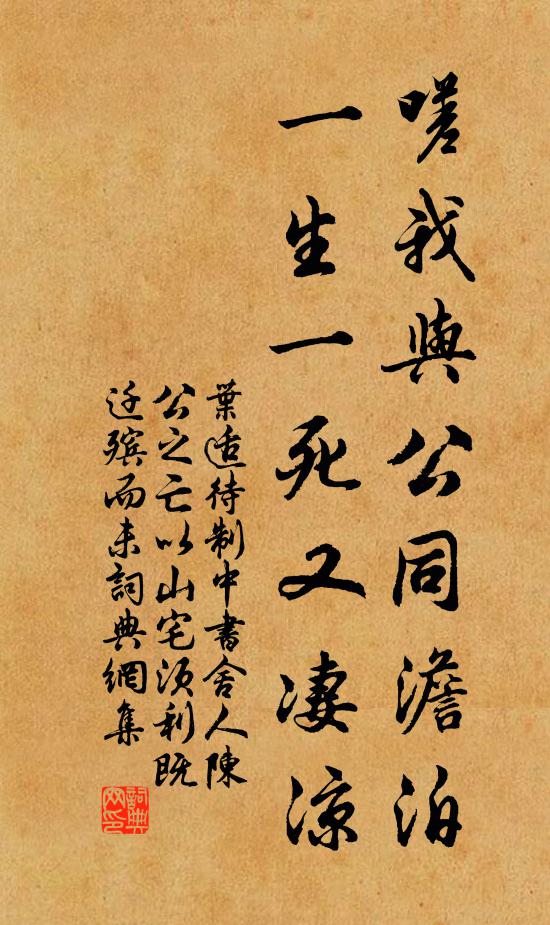 嗟我與公同澹泊
一生一死又凄涼
葉適待制中書舍人陳
公之亡以山宅須利既
迁殯而未詞典網集
詞典網印